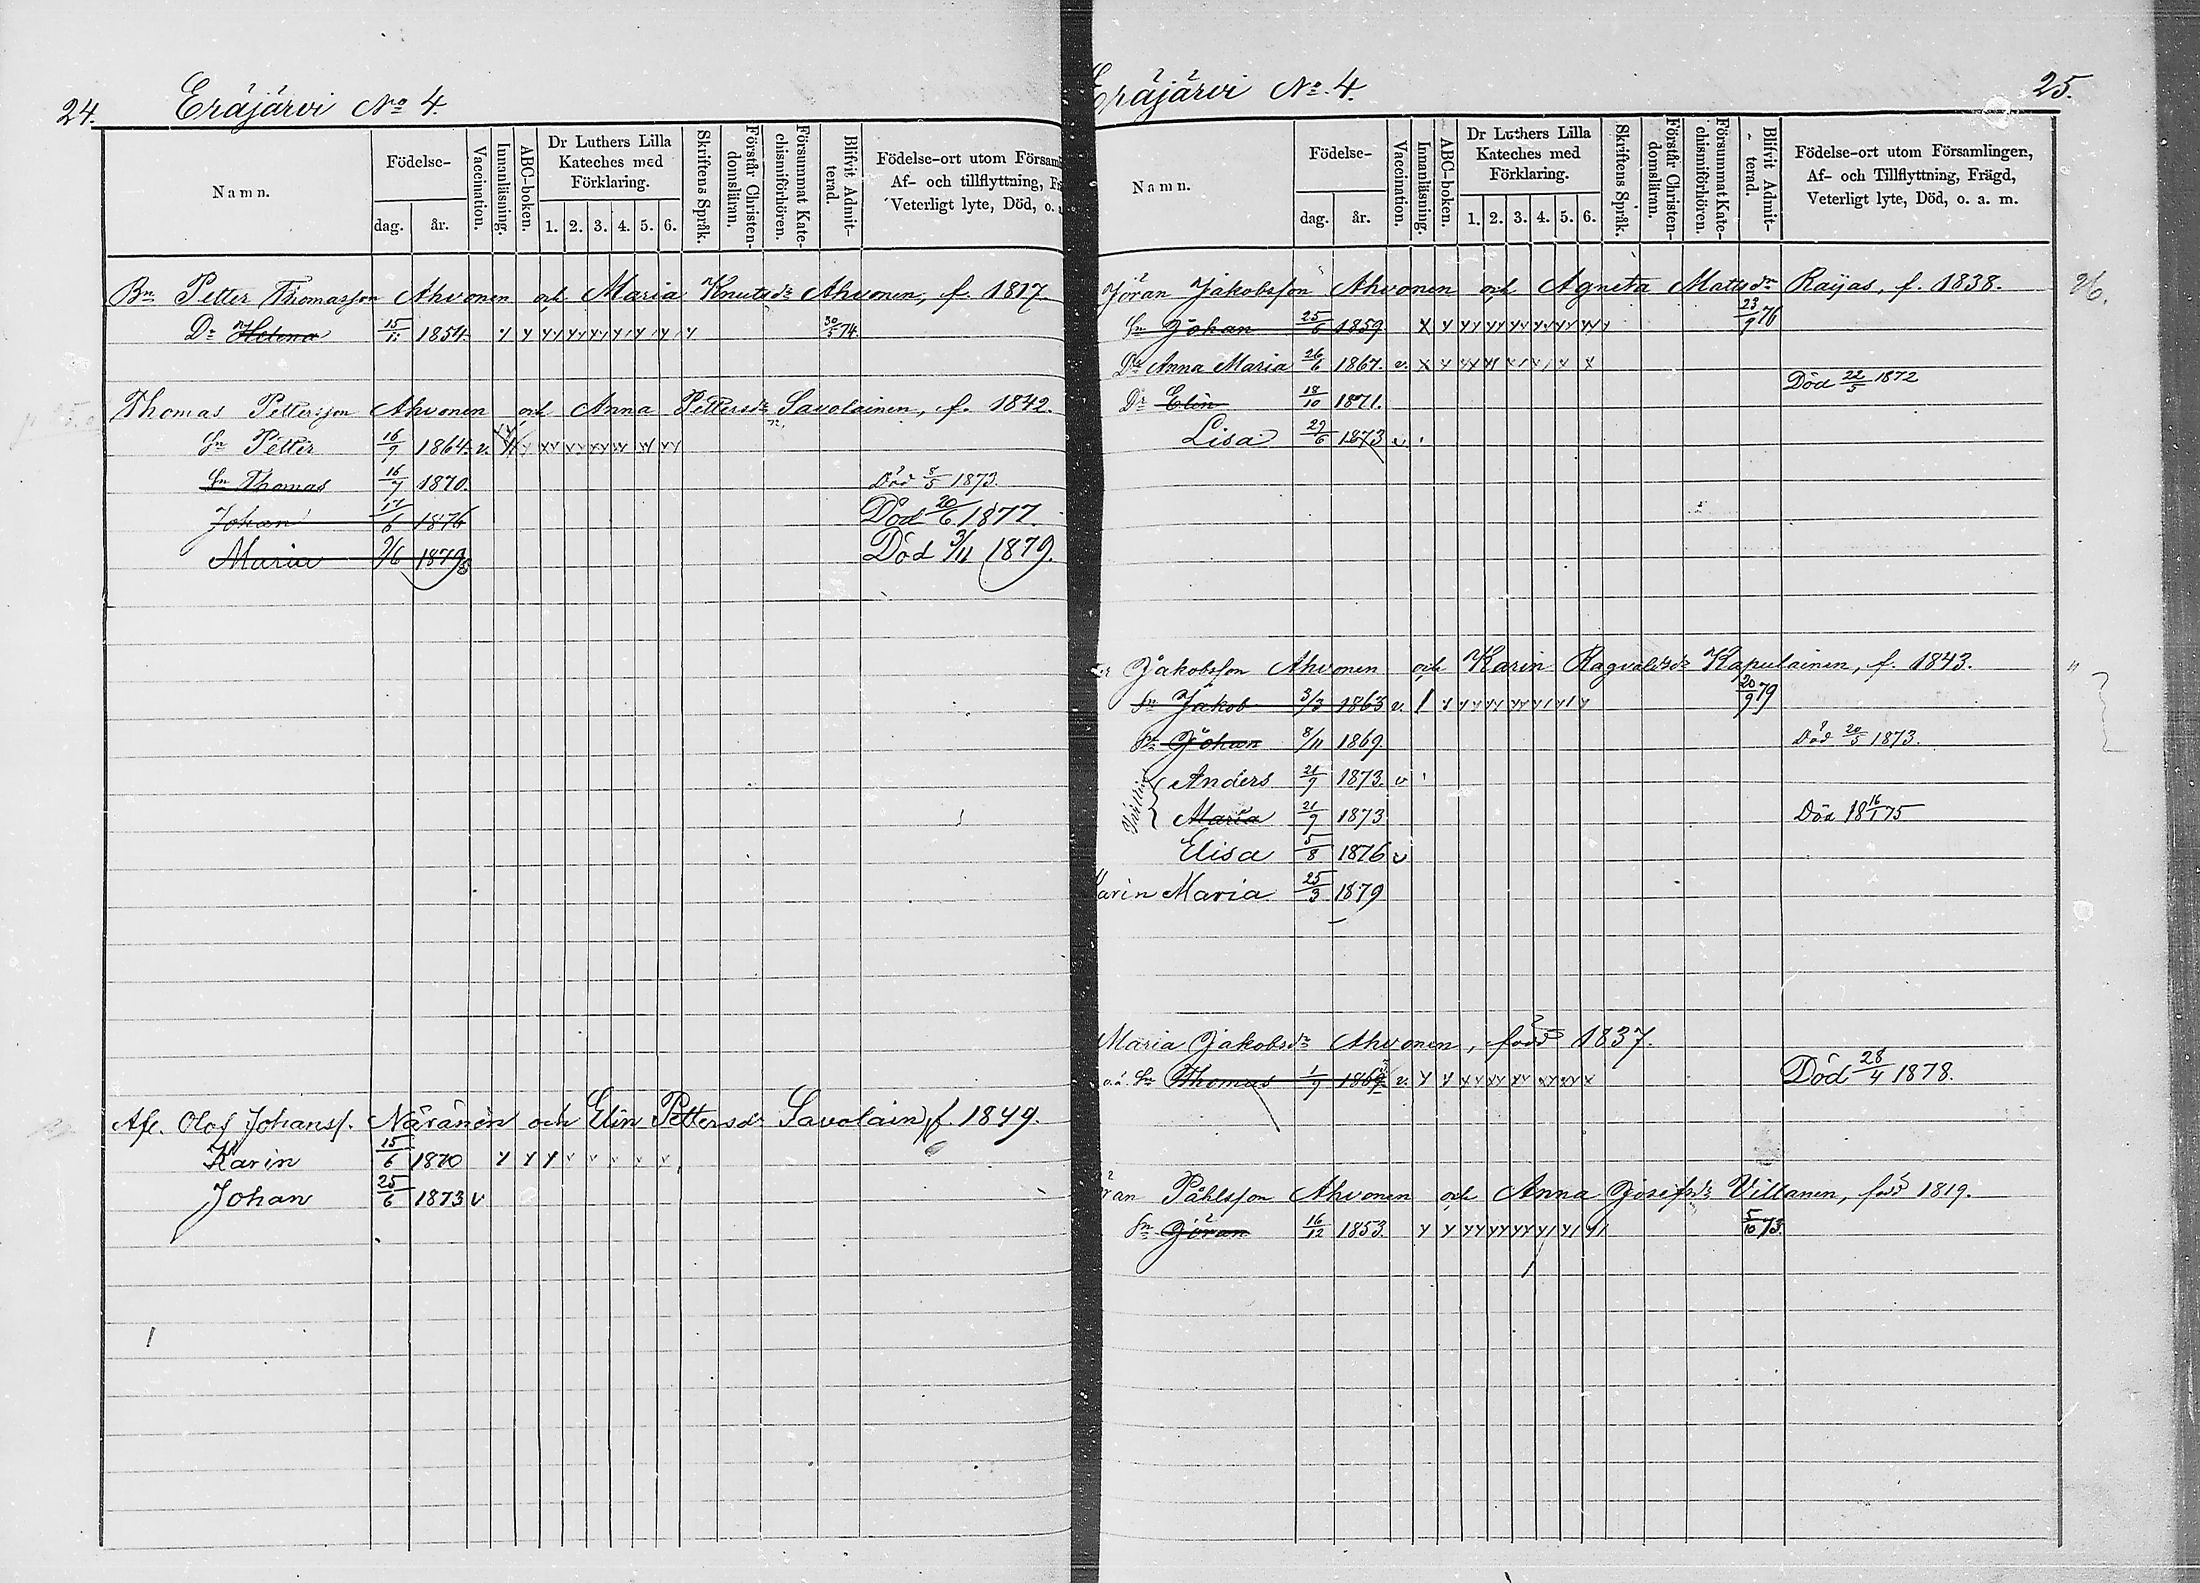 24. Eräjärvi No 4.
Namn.
Födelse-
dag.
år.
Vaccination.
Innanläsning.
ABC-boken.
Dr Luthers Lilla Kateches med Förklaring.
1. 2. 3. 4. 5. 6.
Skriftens Språk.
Förstår Christen-domsläran.
Försummat Kate-chismiförhören.
Blifvit Admit-terad.
Födelse-ort utom Församl
Af- och tillflyttning, Fr
Veterligt lyte, Död, o.
Bn Petter Thomasson Ahvonen och Maria Knutsdr Ahvonen, f. 1817.
Dr Helena 15/1 1854. 30/5 74.
Thomas Pettersson Ahvonen och Anna Pettersdr Savolainen, f. 1842.
Sn Petter 16/9 1864. v.
Sn Thomas 16/7 1870. Död 8/5 1873.
Johan 17/6 1876 Död 20/6 1877.
Maria 9/6 1879 Död 3/11 1879.
Afl. Olof Johanss. Näränen och Elin Pettersdr Savolain, f. 1849.
Karin 15/6 1870
Johan 25/6 1873 v
Eräjärvi No 4. 25.
Namn.
Födelse-
dag.
år.
Vaccination.
Innanläsning.
ABC-boken.
Dr Luthers Lilla Kateches med Förklaring.
1. 2. 3. 4. 5. 6.
Skriftens Språk.
Förstår Christen-domsläran.
Försummat Kate-chismiförhören.
Blifvit Admit-terad.
Födelse-ort utom Församlingen,
Af- och Tillflyttning, Frägd,
Veterligt lyte, Död, o. a. m.
Jöran Jakobsson Ahvonen och Agneta Mattsdr Raijas, f. 1838. 26.
Sn Johan 25/6 1859 23/9 76
Dr Anna Maria 26/6 1867. v.
Dr Elin 18/10 1871. Död 22/5 1872
Lisa 29/6 1873 v
Jakobsson Ahvonen och Karin Ragvaldsdr Kapulainen, f. 1843. "
Sn Jakob 3/3 1863 v. 20/9 79
Sn Johan 8/11 1869 Död 20/5 1873.
Anders 21/9 1873. v
Maria 21/9 1873 Död 16/1 1875
Elisa 5/8 1876 v
Karin Maria 25/3 1879
Maria Jakobsdr Ahvonen, född 1837.
o.ä. Sn Thomas 1/9 1869 v. Död 28/4 1878.
ran Påhlsson Ahvonen och Anna Josefsdr Villanen, född 1819.
Sn Jöran 16/12 1853. 5/10 73.